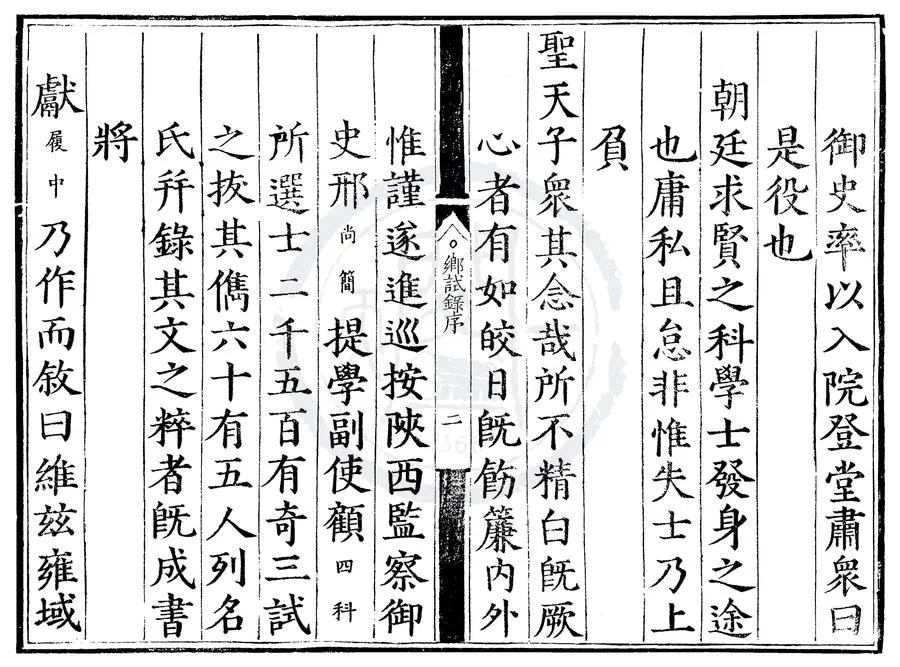 御史率以入院登堂肅衆曰
是役也
朝廷求賢之科學士發身之途
也庸私且怠非惟失士乃上
負
聖天子衆其念哉所不精白旣厥
心者有如皎日旣飭簾内外
鄉試錄序
二
惟謹遂進巡按陝西監察御
史邢尚簡提學副使顧四科
所選士二千五百有奇三試
之拔其儁六十有五人列名
氏幷錄其文之粹者旣成書
將
獻履中乃作而敘曰維兹雍域